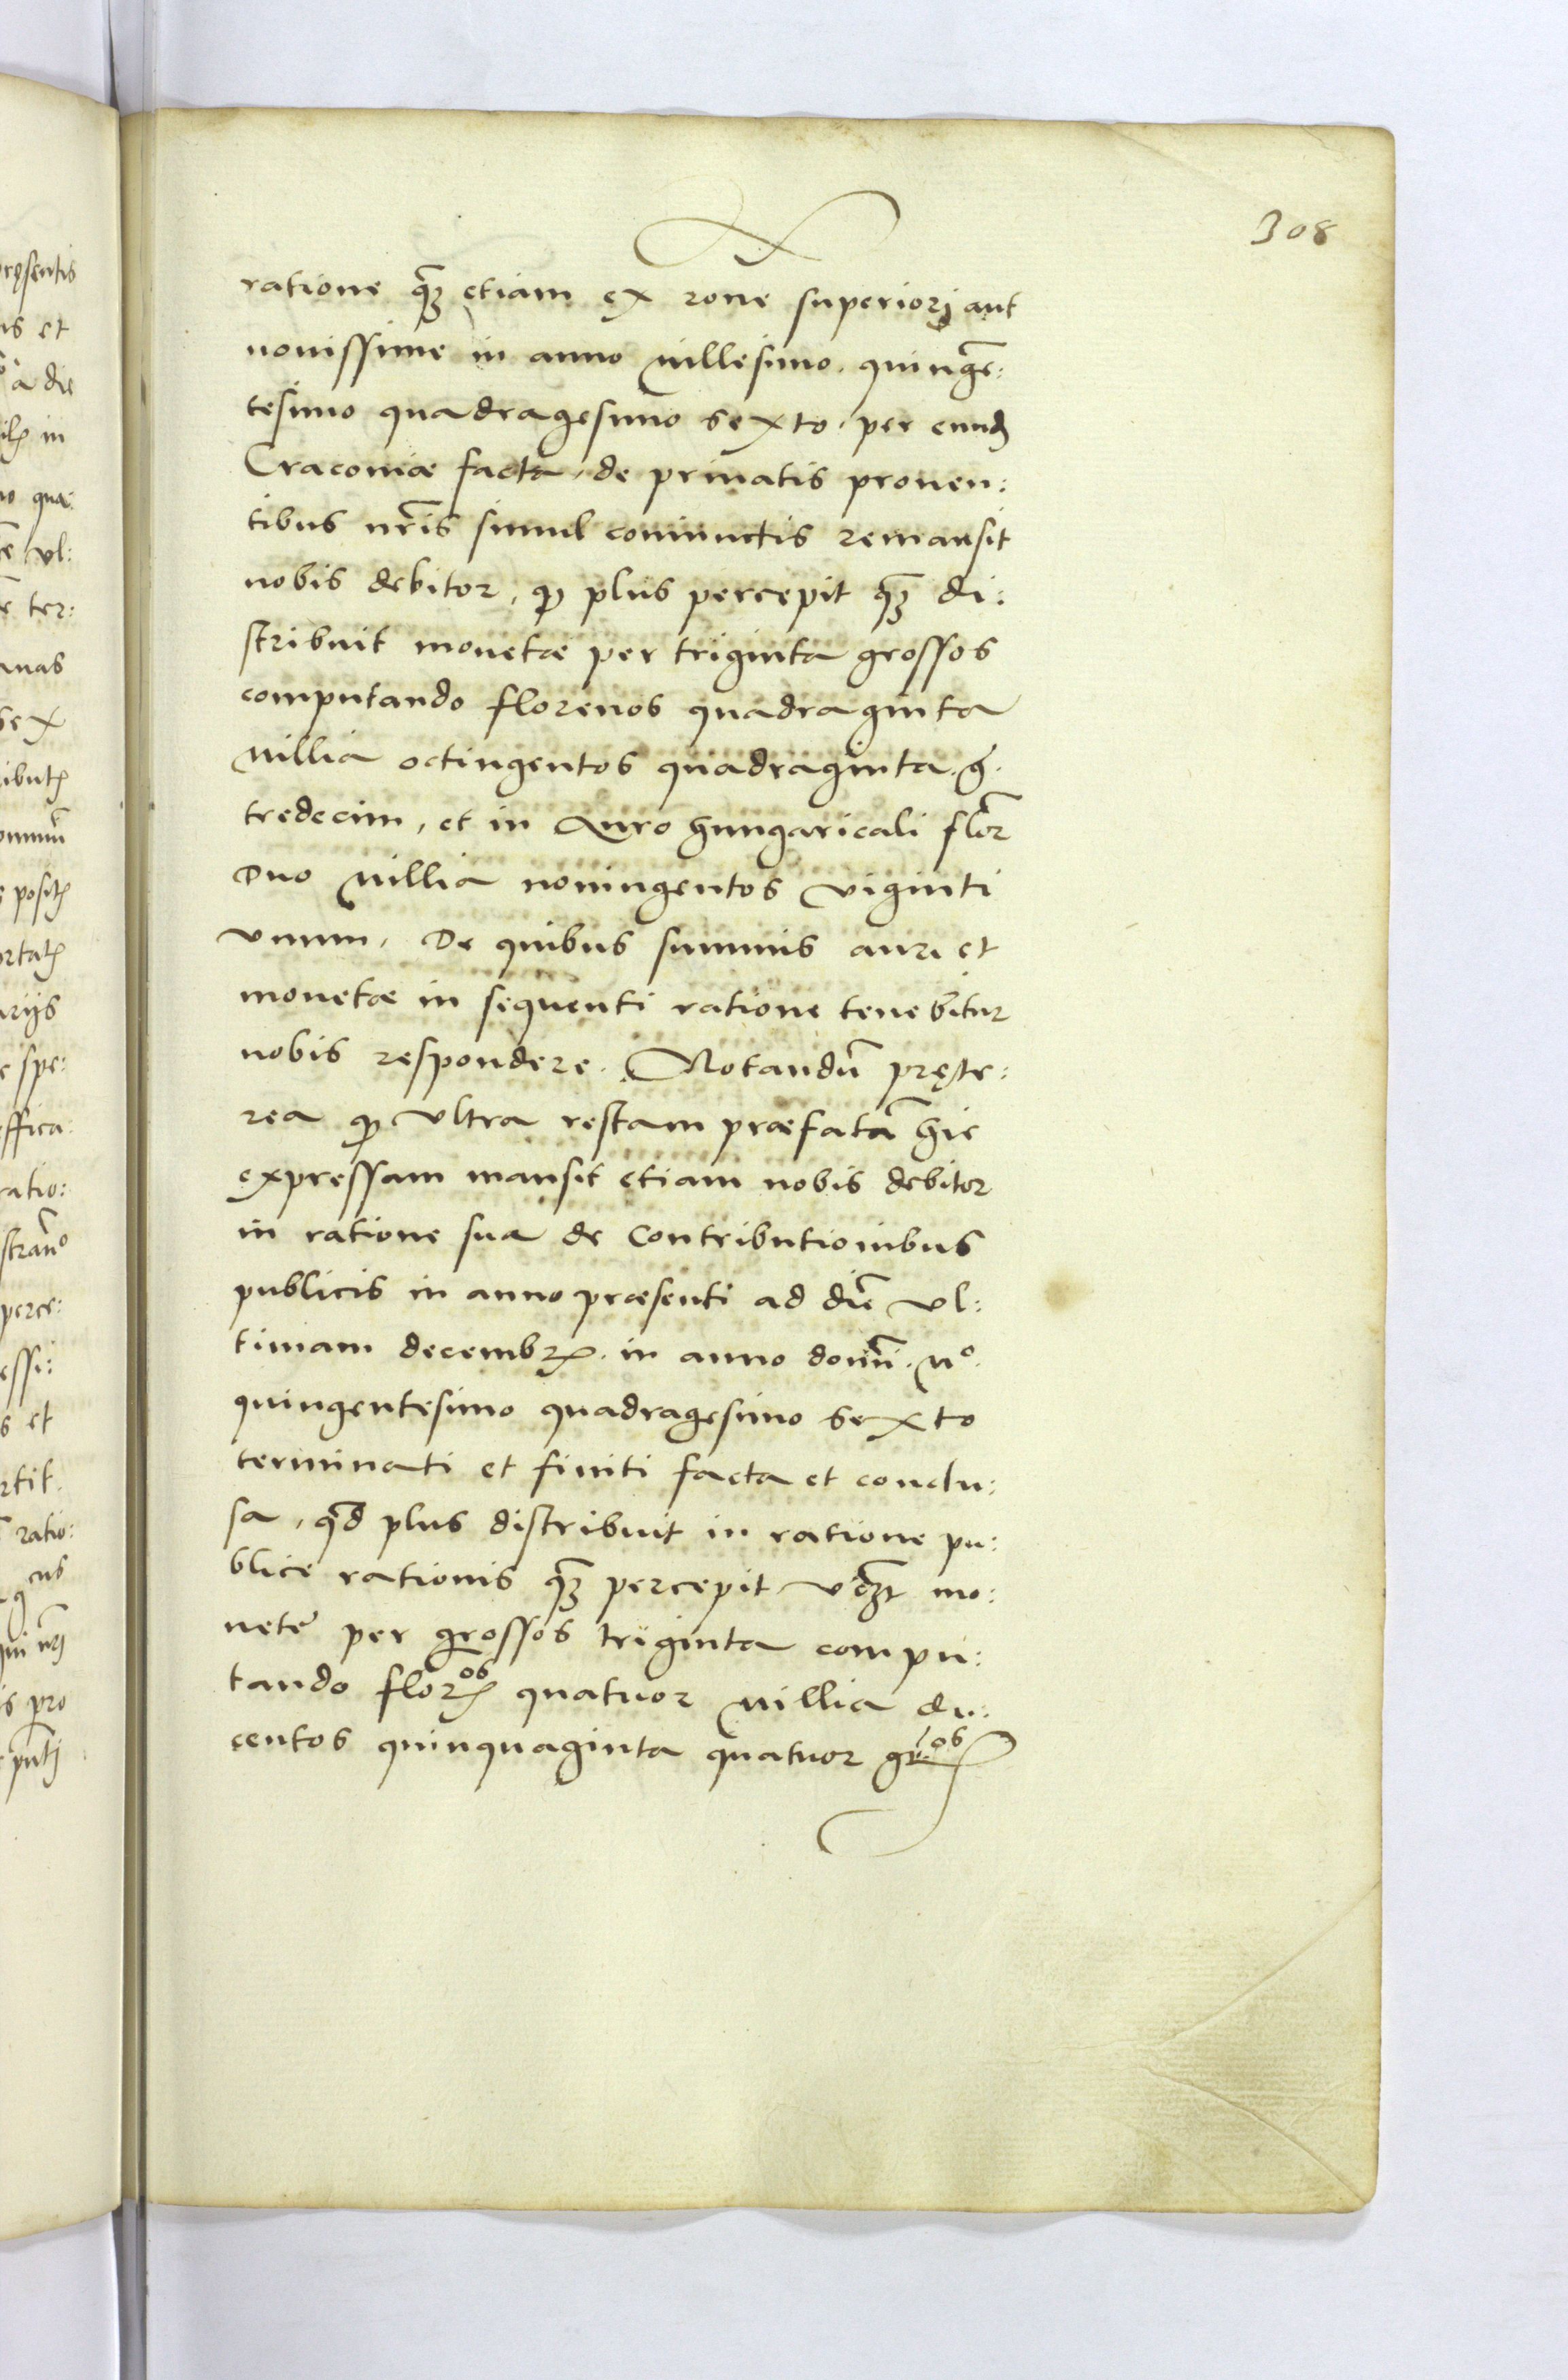 308
ratione quã etiam ex rone superiorj aut
nouissime in anno millesimo. quingẽ:
tesimo quadragesimo sexto. per eund
Cracouiæ facta, de priuatis prouen:
tibus nr̃is simul coniunctis remansit
nobis debitor, qp plus percepit quã di:
stribuit monetæ per triginta grossos
computando florenos quadraginta
millia octingentos quadraginta. g̃.
tredecim, et in Auro hungaricali flor̃
Duo millia noningentos viginti
vnum, De quibus summis auri et
monetæ in sequenti ratione tenebitur
nobis respondere. Notandũ pręte:
rea qp vltra restam præfatã hic
expressam mansit etiam nobis debitor
in ratione sua de Contributionibus
publicis in anno præsenti ad diẽ vl:
timam decembr. in anno domĩ. mº.
quingentesimo quadragesimo sexto
terminati et finiti facta et conclu:
sa, qd̃ plus distribuit in ratione pu:
blice rationis quã percepit vczt mo:
nete per grossos triginta compu:
tando flor^os quatuor millia du:
centos quinquaginta quatuor gr^os
pręsentis
is et
a die
in
no quæ:
vl:
ter:
mas
sex
posit
arijs
spe:
ffica:
ratio:
perce:
essi:
s et
rtit.
ratio:
is pro